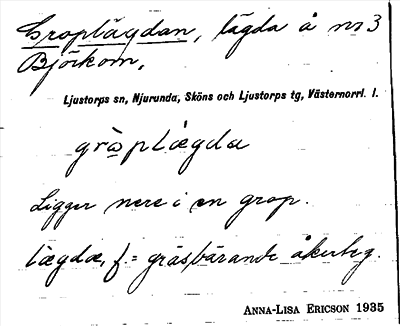 Groplägdan, lägda å nr 3
Björkom.
Ljustorps sn, Njurunda, Sköns och Ljustorps tg, Västernorrl. l.
gròplægda
Ligger nere i en grop.
lægda, f. = gräsbärande åkerteg.
ANNA-LISA ERICSON 1935